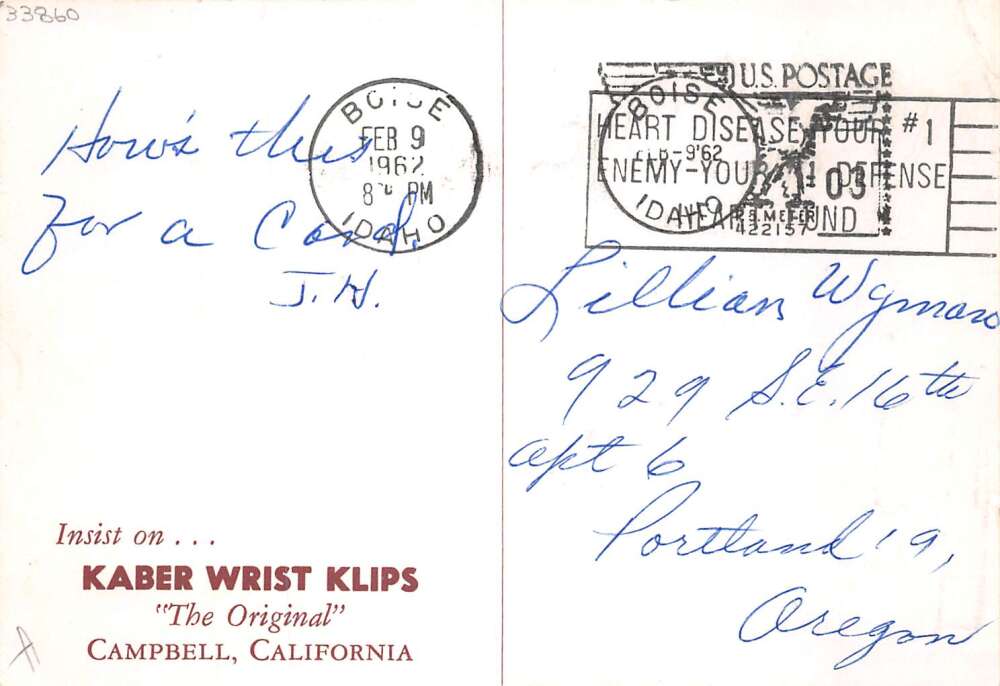 33860
How's this
for a Card.
J.H.
BOISE
FEB 9
1962
PM
IDAHO
Insist on . . .
KABER WRIST KLIPS
"The Original"
CAMPBELL, CALIFORNIA
A
U.S. POSTAGE
BOISE
FEB-9'62
IDAHO
HEART DISEASE YOUR #1
ENEMY-YOUR #1 DEFENSE
HEART FUND
03
P.B. METER
422157
Lillian Wyman
929 S.E. 16th
apt 6
Portland
Oregon